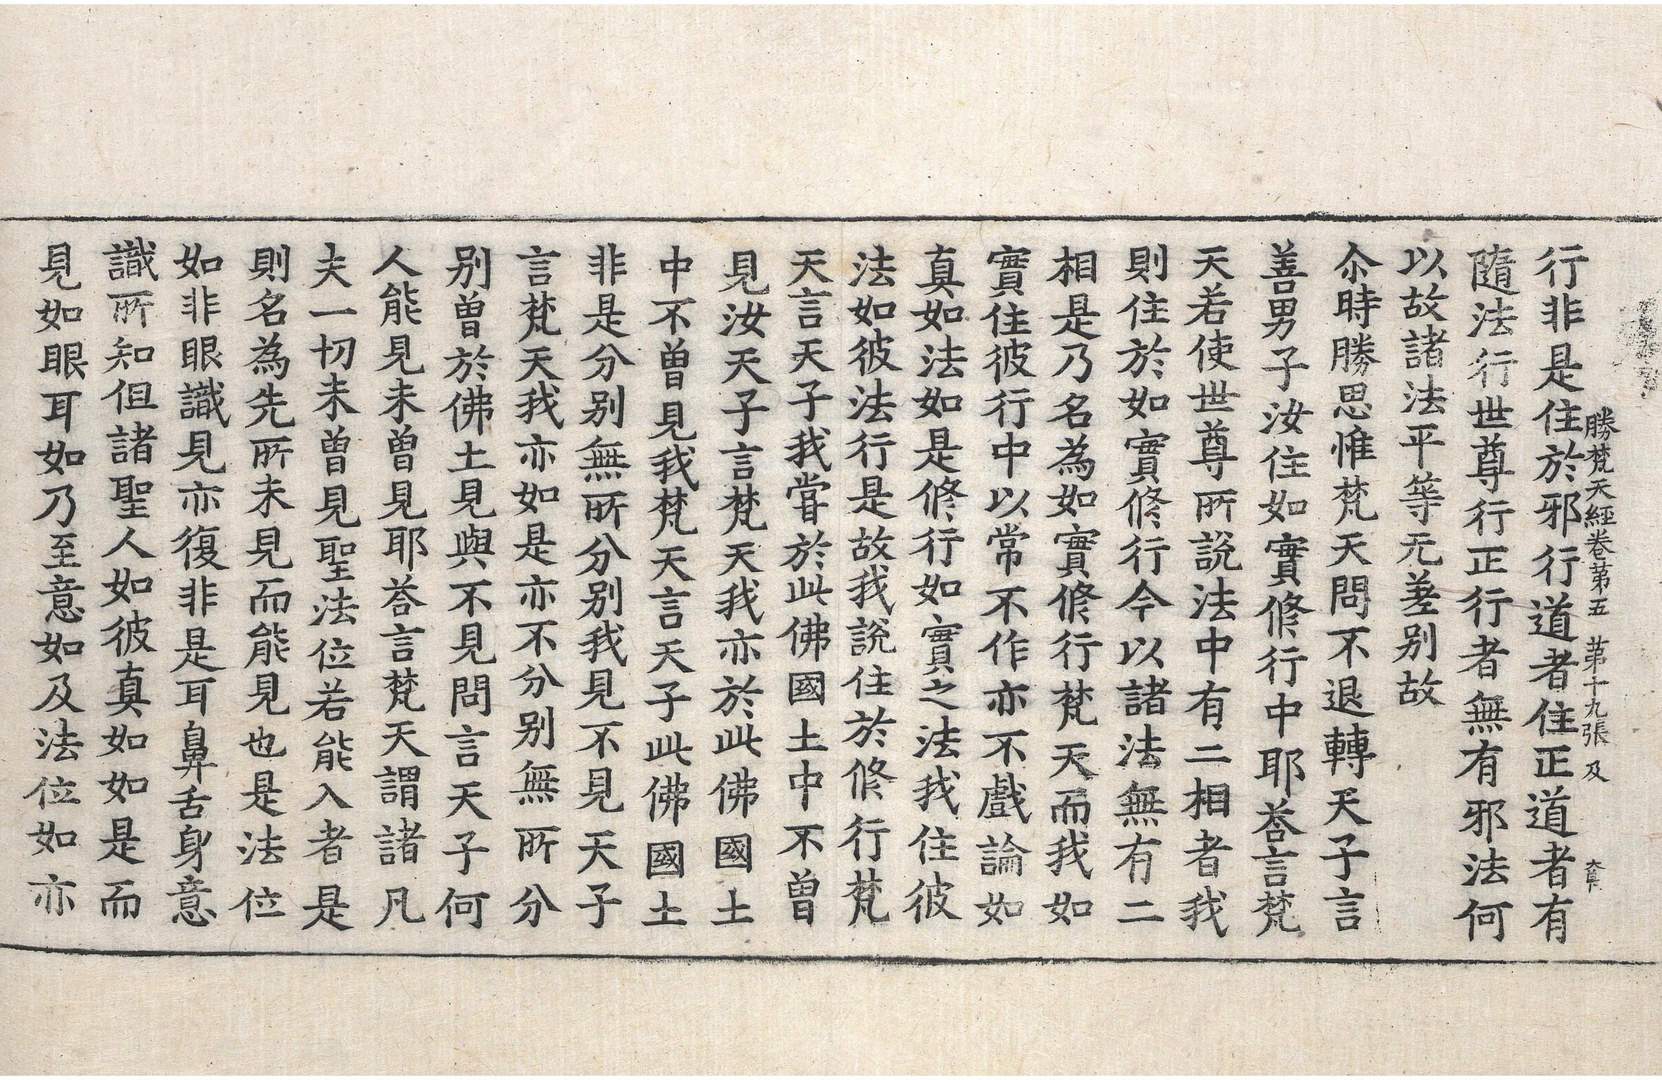 行非是住於邪行道者住正道者有
勝梵天經卷苐五 苐十九張 及
隨法行世尊行正行者無有邪法何
以故諸法平等无差别故
尒時勝思惟梵天問不退轉天子言
善男子汝住如實修行中耶荅言梵
天若使世尊所說法中有二相者我
則住於如實修行今以諸法無有二
相是乃名為如實修行梵天而我如
實住彼行中以常不作亦不戲論如
真如法如是修行如實之法我住彼
法如彼法行是故我說住於修行梵
天言天子我甞於此佛國土中不曾
見汝天子言梵天我亦於此佛國土
中不曾見我梵天言天子此佛國土
非是分别無所分别我見不見天子
言梵天我亦如是亦不分别無所分
别曾於佛土見與不見問言天子何
人能見未曾見耶荅言梵天謂諸凡
夫一切未曾見聖法位若能入者是
則名為先所未見而能見也是法位
如非眼識見亦復非是耳鼻舌身意
識所知但諸聖人如彼真如如是而
見如眼耳如乃至意如及法位如亦